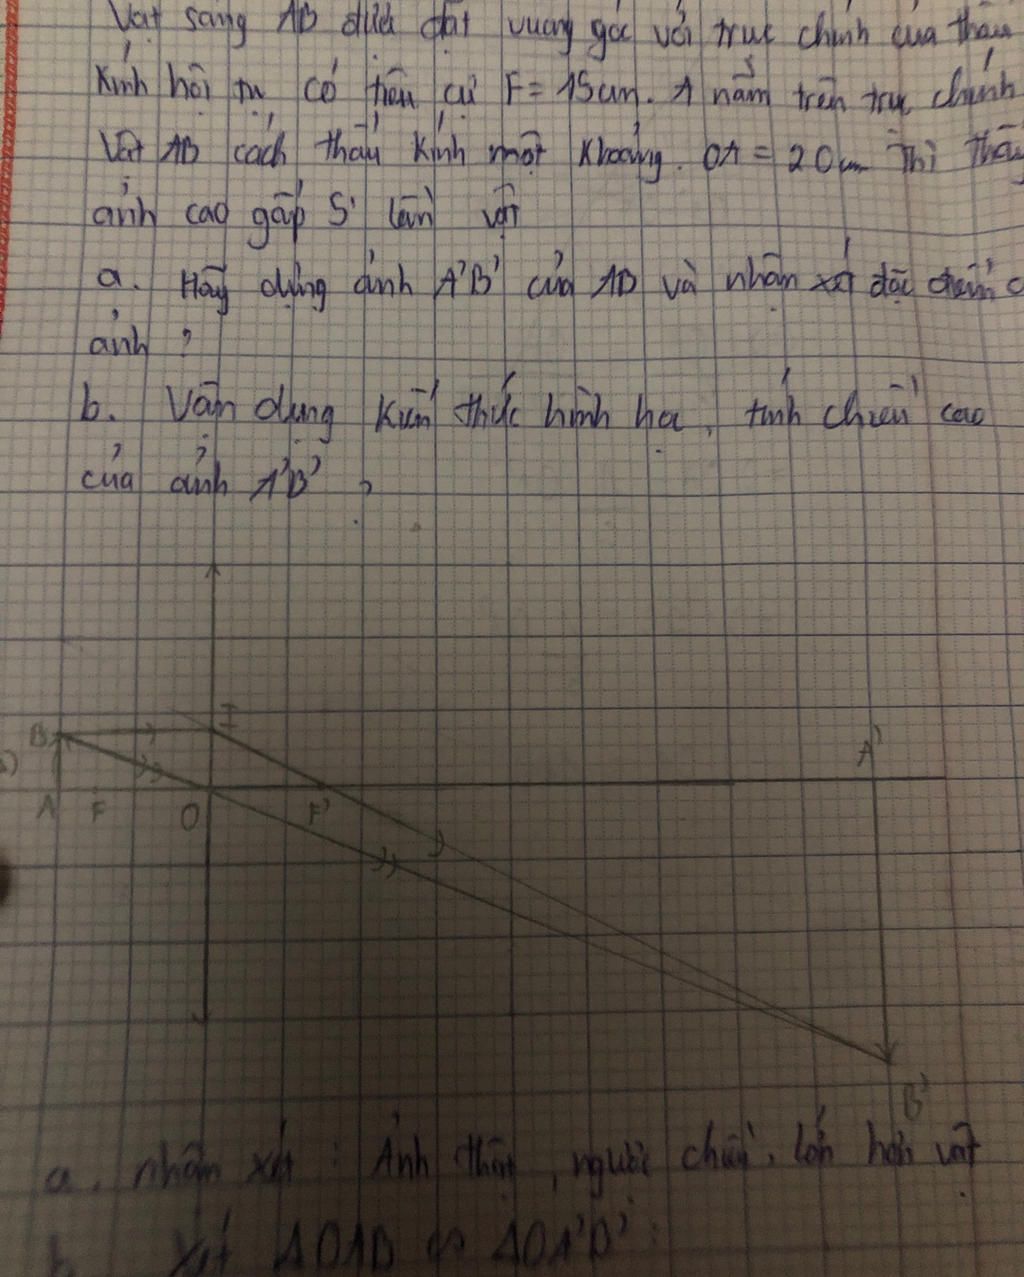 Vật sáng AB được đặt vuông góc với trục chính của thấu
kính hội tụ có tiêu cự F = 15cm. A nằm trên trục chính
Vật AB cách thấu kính một khoảng OA = 20cm thì thấy
ảnh cao gấp 5 lần vật
a. Hãy dựng ảnh A'B' của AB và nhận xét đặc điểm c
ảnh ?
b. Vận dụng kiến thức hình học, tính chiều cao
của ảnh A'B' ?
B I A'
A F O F'
B'
a. nhận xét : Ảnh thật, ngược chiều, lớn hơn vật
b Xét ΔOAB ∽ ΔOA'B' :